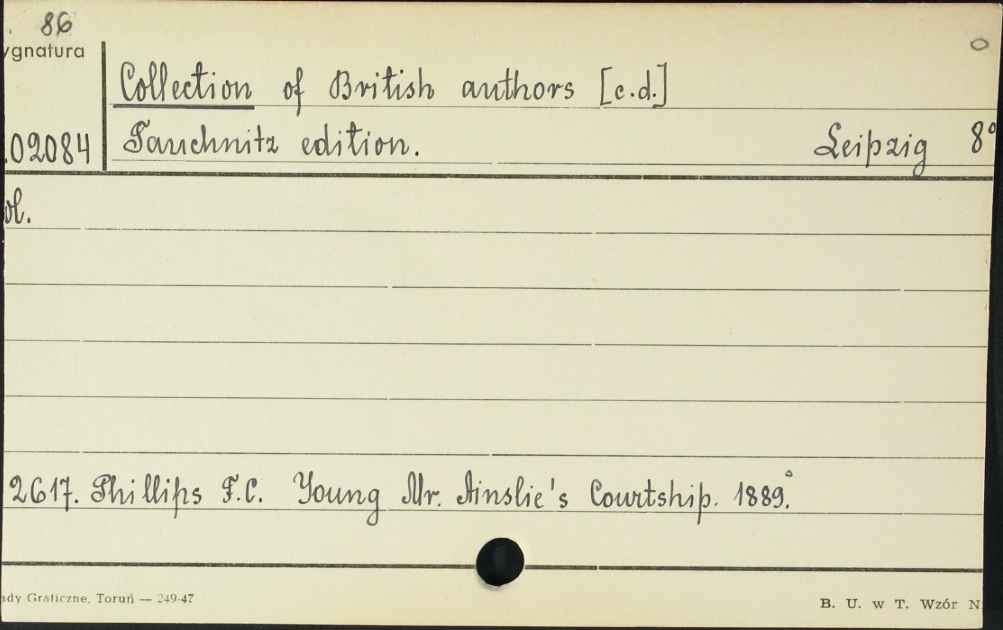 86
ygnatura
Collection of British authors [c.d.]
.02084 Tauchnitz edition. Leipzig 8°
ol.
2617. Phillips F.C. Young Mr. Ainslie's Courtship. 1889.°
ady Graficzne, Toruń — 249-47
B. U. w T. Wzór N